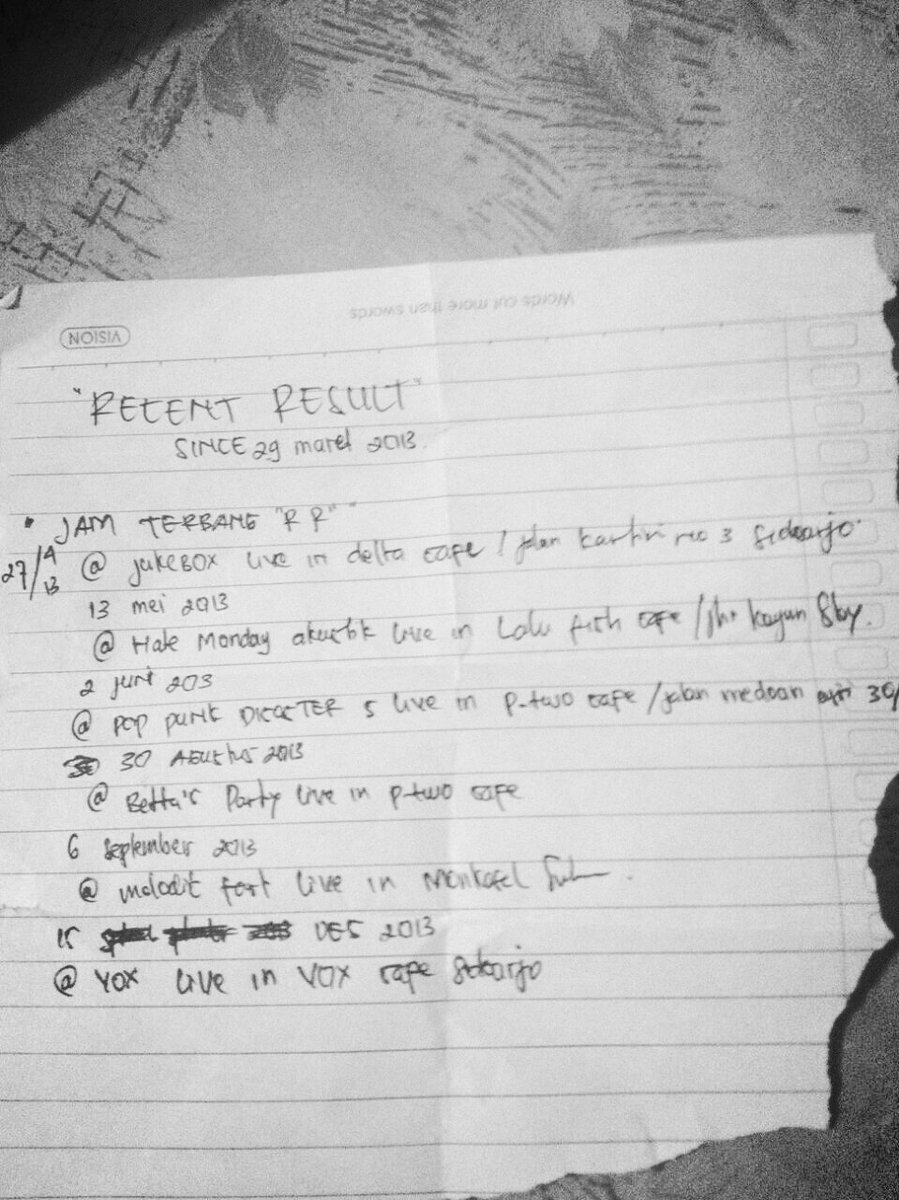 Words cut more than swords
VISION
"RECENT RESULT"
SINCE 29 maret 2013.
• JAM TERBANG "RR"
27/4/13 @ JUKEBOX live in delta cafe / jalan kartini no 3 Sidoarjo.
13 mei 2013
@ Hate Monday akustik live in Lalu fish cafe / jln kayun Sby.
2 juni 203
@ POP PUNK DISASTER 5 live in p-two cafe / jalan medoan 30/
30 AGUSTUS 2013
@ Betta's Party live in p-two cafe
6 September 2013
@ live in
15 DES 2013
@ VOX live in VOX cafe Sidoarjo